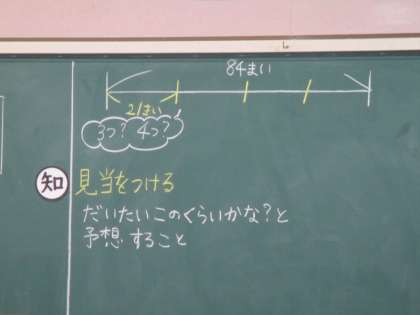 84まい
21まい
3つ? 4つ?
知
見当をつける
だいたいこのぐらいかな?と
予想すること